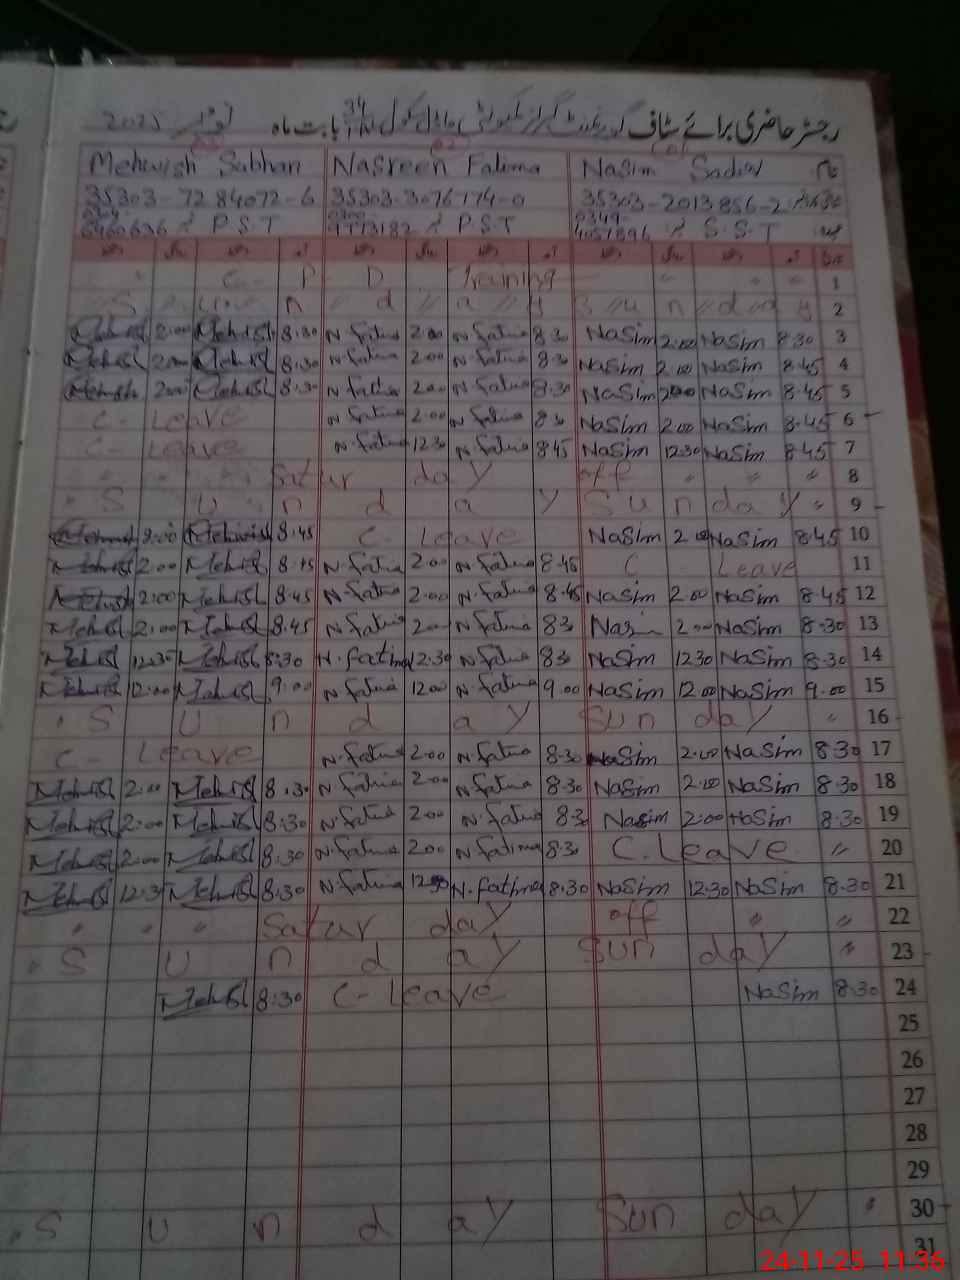 رجسٹر حاضری برائے سٹاف گورنمنٹ گرلز کمیونٹی ماڈل سکول 34 بابت ماہ نومبر 2025
Mehwish Subhan Nasreen Fatima Nasim نام
35303-7284072-6 35303-3076174-0 35303-2013856-2
6460636 P.S.T 9773182 P.S.T 0349- 4057896 S.S.T
C- P D Training 1
S u n d a y S u n d a y 2
Mehwish 2:00 Mehwish 8:30 N.fatima 2:00 N.fatima 8:30 NaSim 2:00 NaSim 8:30 3
Mehwish 2:00 Mehwish 8:30 N.fatima 2:00 N.fatima 8:30 NaSim 2:00 NaSim 8:45 4
Mehwish 2:00 Mehwish 8:30 N.fatima 2:00 N.fatima 8:30 NaSim 2:00 NaSim 8:45 5
C- Leave N.fatima 2:00 N.fatima 8:30 NaSim 2:00 NaSim 8:45 6
C- Leave N.fatima 12:30 N.fatima 8:45 NaSim 12:30 NaSim 8:45 7
Satur day off 8
S U n d a y S u n d a y 9
Mehwish 2:00 Mehwish 8:45 C- Leave NaSim 2:00 NaSim 8:45 10
Mehwish 2:00 Mehwish 8:45 N.fatima 2:00 N.fatima 8:45 C Leave 11
Mehwish 2:00 Mehwish 8:45 N.fatima 2:00 N.fatima 8:45 NaSim 2:00 NaSim 8:45 12
Mehwish 2:00 Mehwish 8:45 N.fatima 2:00 N.fatima 8:30 Nasim 2:00 NaSim 8:30 13
Mehwish 12:30 Mehwish 8:30 N.fatima 12:30 N.fatima 8:30 NaSim 12:30 NaSim 8:30 14
Mehwish 12:00 Mehwish 9:00 N.fatima 12:00 N.fatima 9:00 NaSim 12:00 NaSim 9:00 15
S U n d a y Sun day 16
C- Leave N.fatima 2:00 N.fatima 8:30 NaSim 2:00 NaSim 8:30 17
Mehwish 2:00 Mehwish 8:30 N.fatima 2:00 N.fatima 8:30 NaSim 2:00 NaSim 8:30 18
Mehwish 2:00 Mehwish 8:30 N.fatima 2:00 N.fatima 8:30 Nasim 2:00 NaSim 8:30 19
Mehwish 2:00 Mehwish 8:30 N.fatima 2:00 N.fatima 8:30 C.Leave 20
Mehwish 12:30 Mehwish 8:30 N.fatima 12:30 N.fatima 8:30 NaSim 12:30 NaSim 8:30 21
Satur day off 22
S U n d a y Sun day 23
Mehwish 8:30 C- Leave NaSim 8:30 24
25
26
27
28
29
S U n d a y Sun day 30
31
24-11-25 11:36